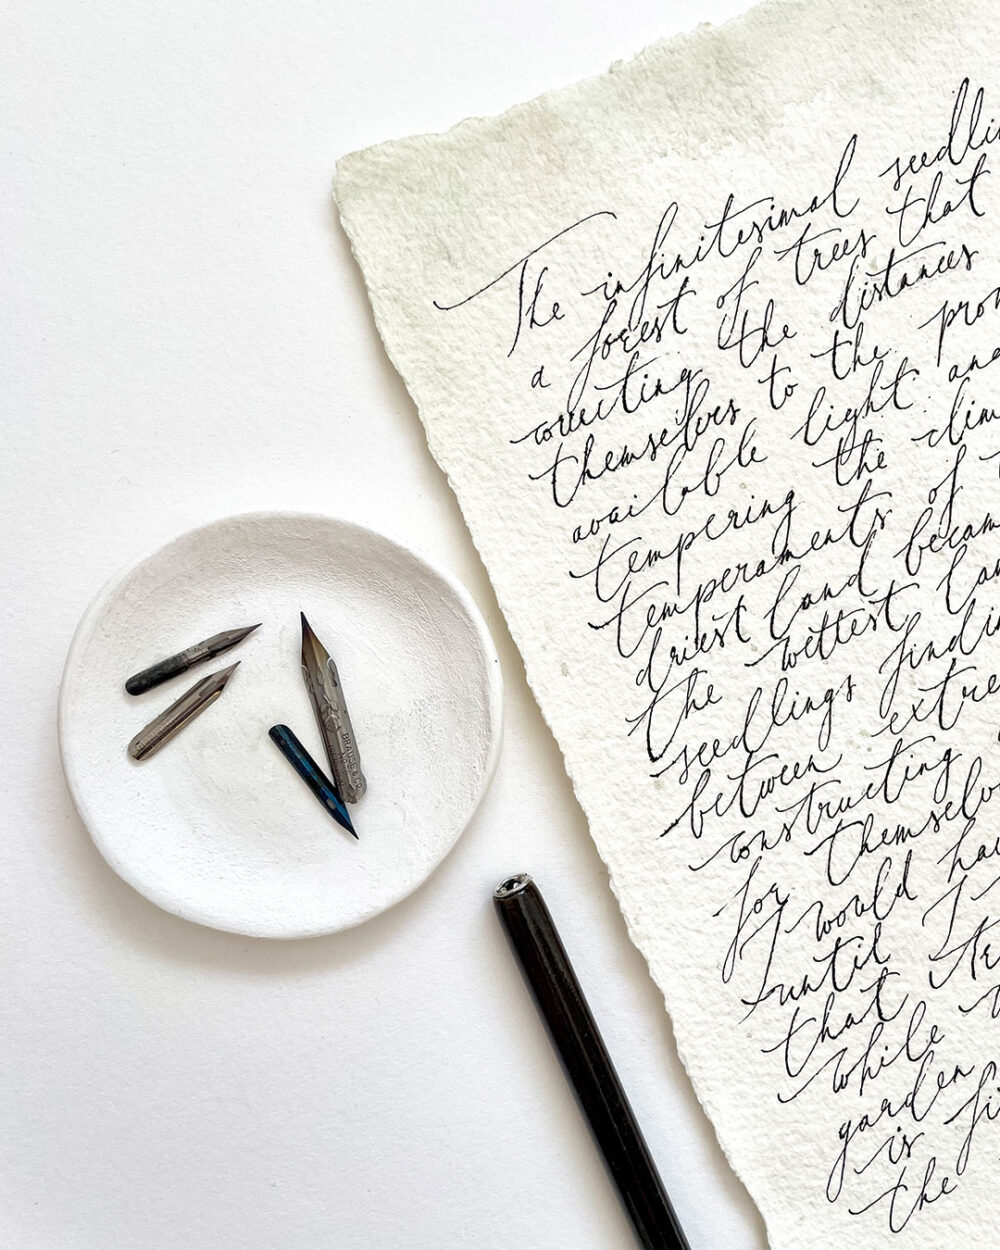 The infinitesimal seedlin
a forest of trees that
the distances
themselves to the
available light and
tempering the clim
temperaments of
driest land becam
the wettest lan
seedlings findin
between extre
constructing
for themselv
I would ha
until I
that
while
garden
is fi
the
BRAUSE & CO